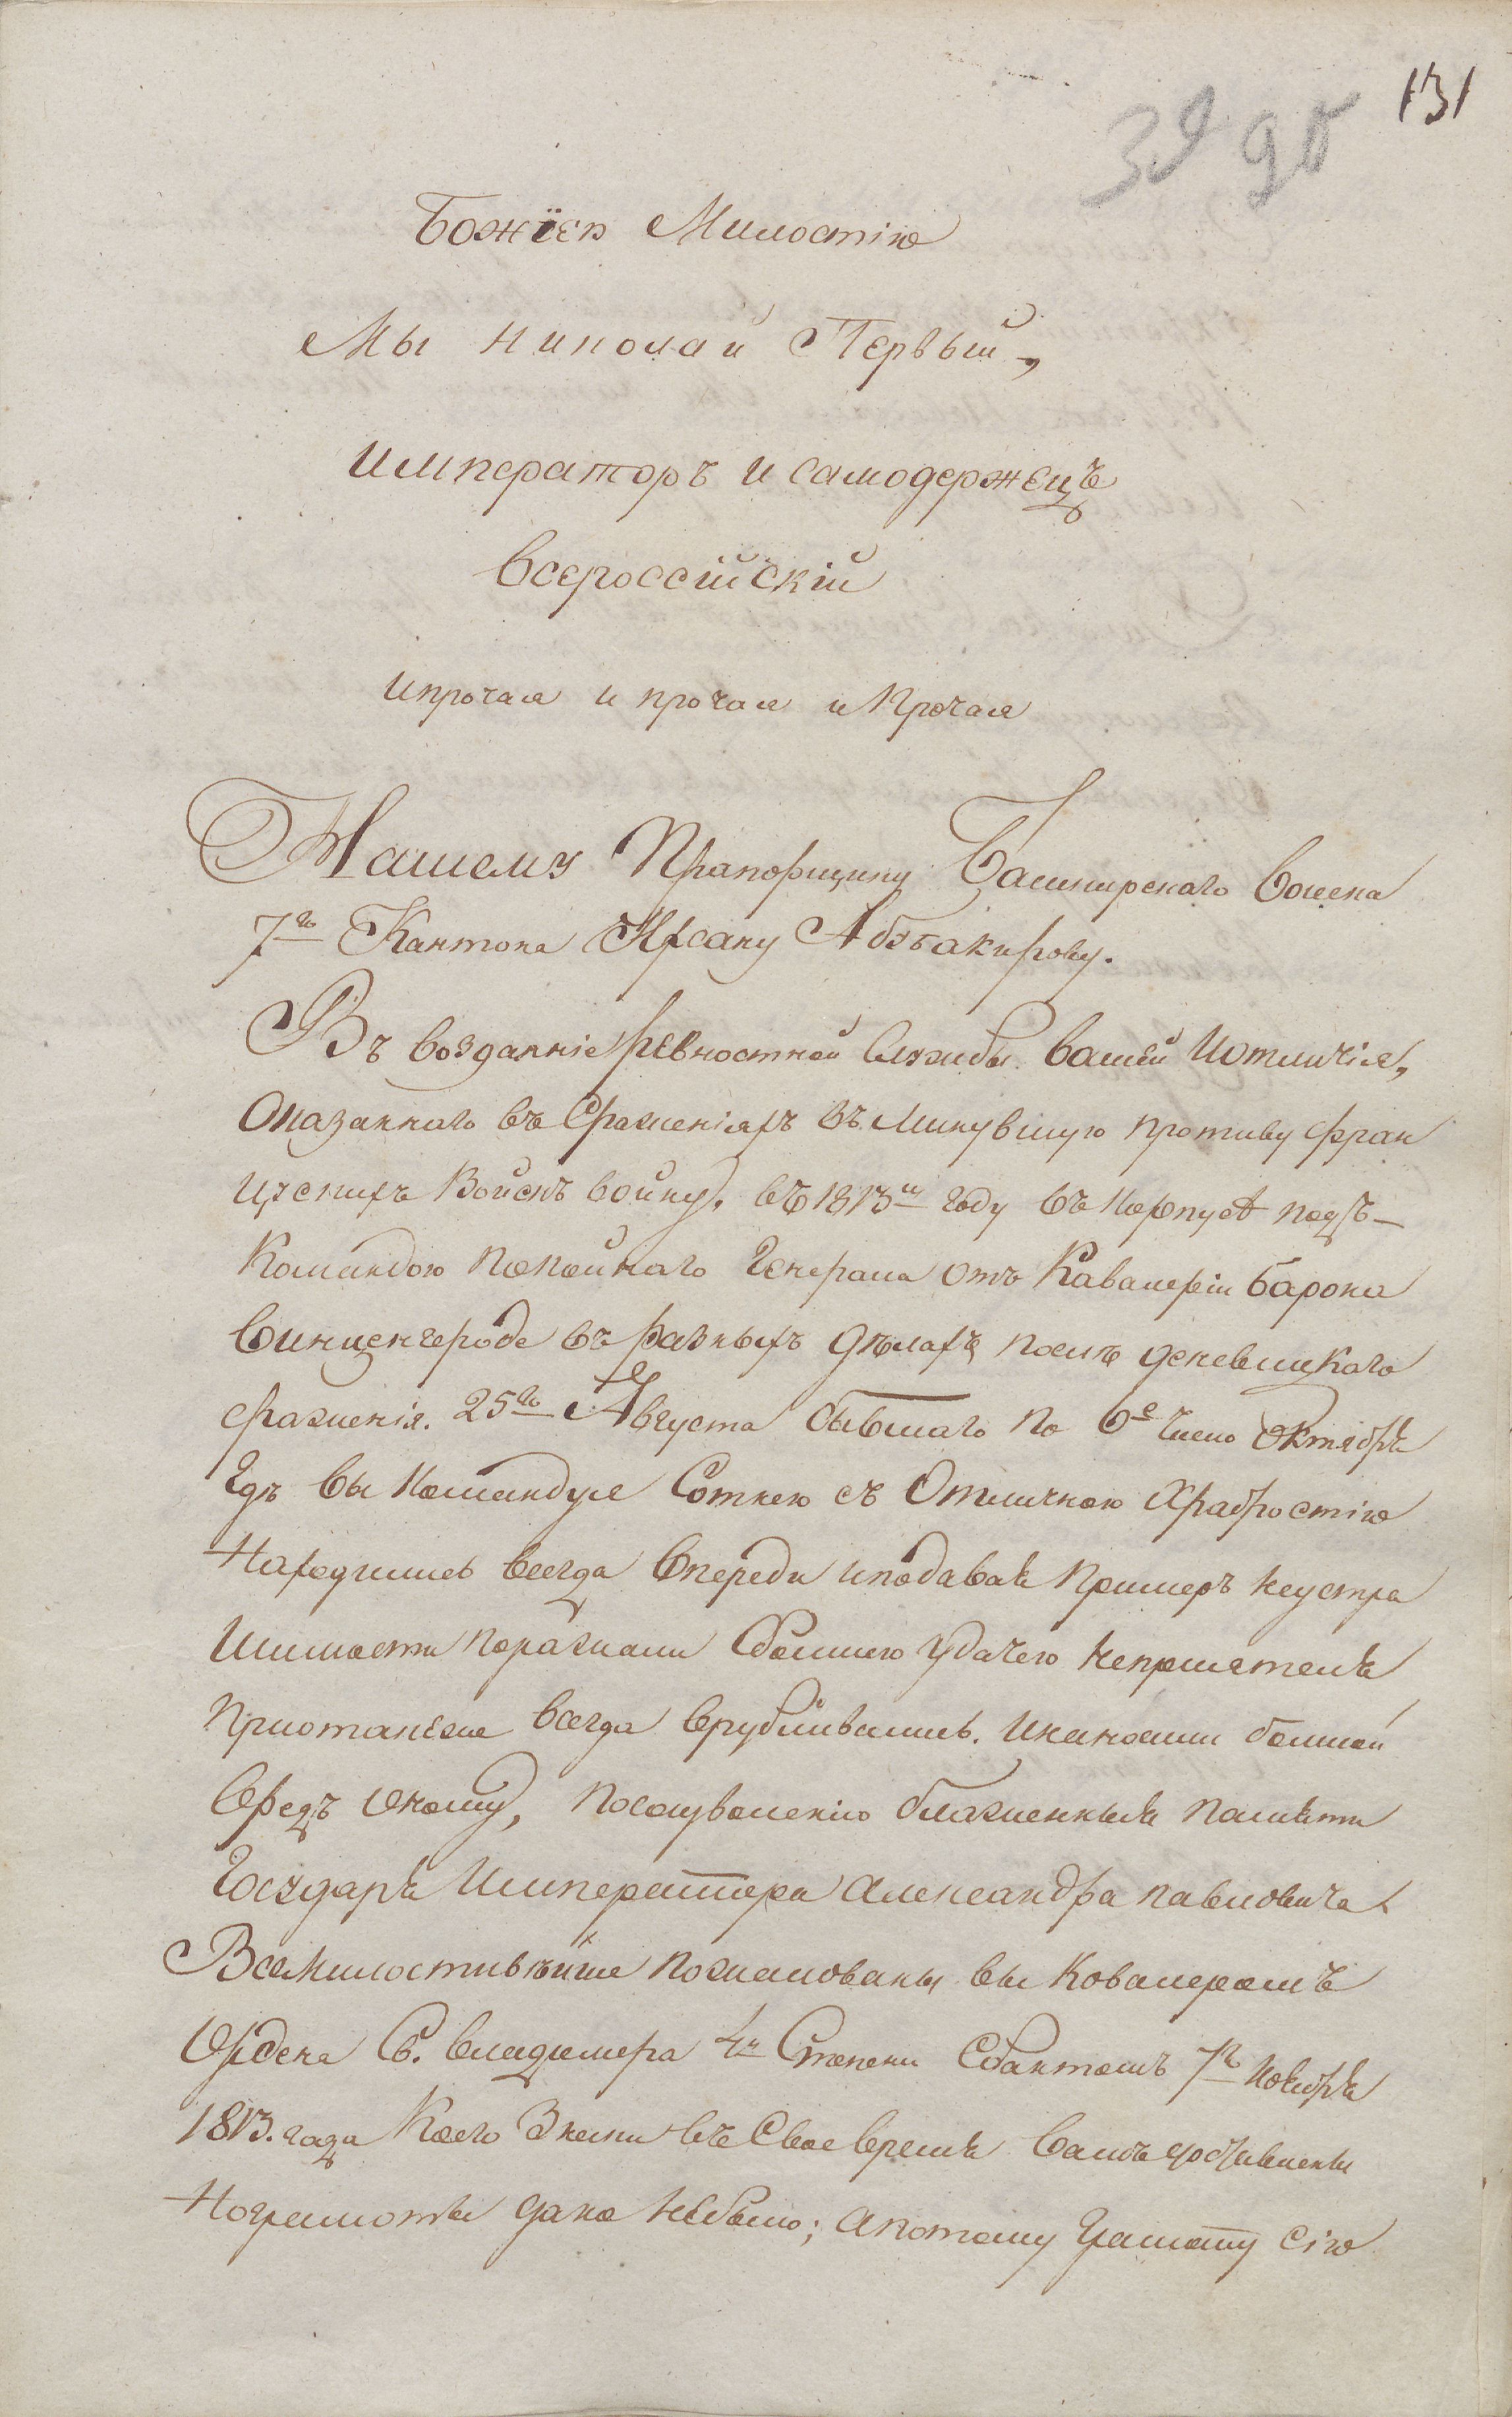 131
39 95
Божіею Милостію
Мы Николай Первый,
Императоръ и самодержецъ
Всероссійскій
Ипрочая и прочая и Прочая
Нашему Прапорщику Башкирскаго Воиска
7го Кантона Ирсаку Абубакирову.
Въ Возданніе ревностной Службы вашей Иотличія,
Оказаннаго въ Сраженіяхъ въ Минувшую противу фран
цускихъ Войскъ войну, въ 1813м году въ Корпусѣ подъ-
Командою Покойнаго Генерала отъ Кавалеріи барона
Винценгероде въ разныхъ дѣлахъ после деневицкаго
сраженія. 25го Августа бывшаго по 6е Число Октября
Гдѣ Вы Командуя Сотнею съ Отличною Храбростію
Находились Всегда Впереди иподавая Примеръ неустра
Шимости поражали Сболшею Удачею непріятеля
Приотакеже всегда Врубливались. Инаносили болшой
Вредъ Оному, Посоизволенію блаженныя памяти
Государя Императора Александра павловича
Всемилостивѣйше пожалованы вы Ковалеромъ
Ордена Св. Владимера 4й Степени Сбантомъ 7го ноября
1813. года Коего Знаки въ Свое Время Вамъ доставлены
Нограмоты дано небыло; Апотому Грамоту Сію